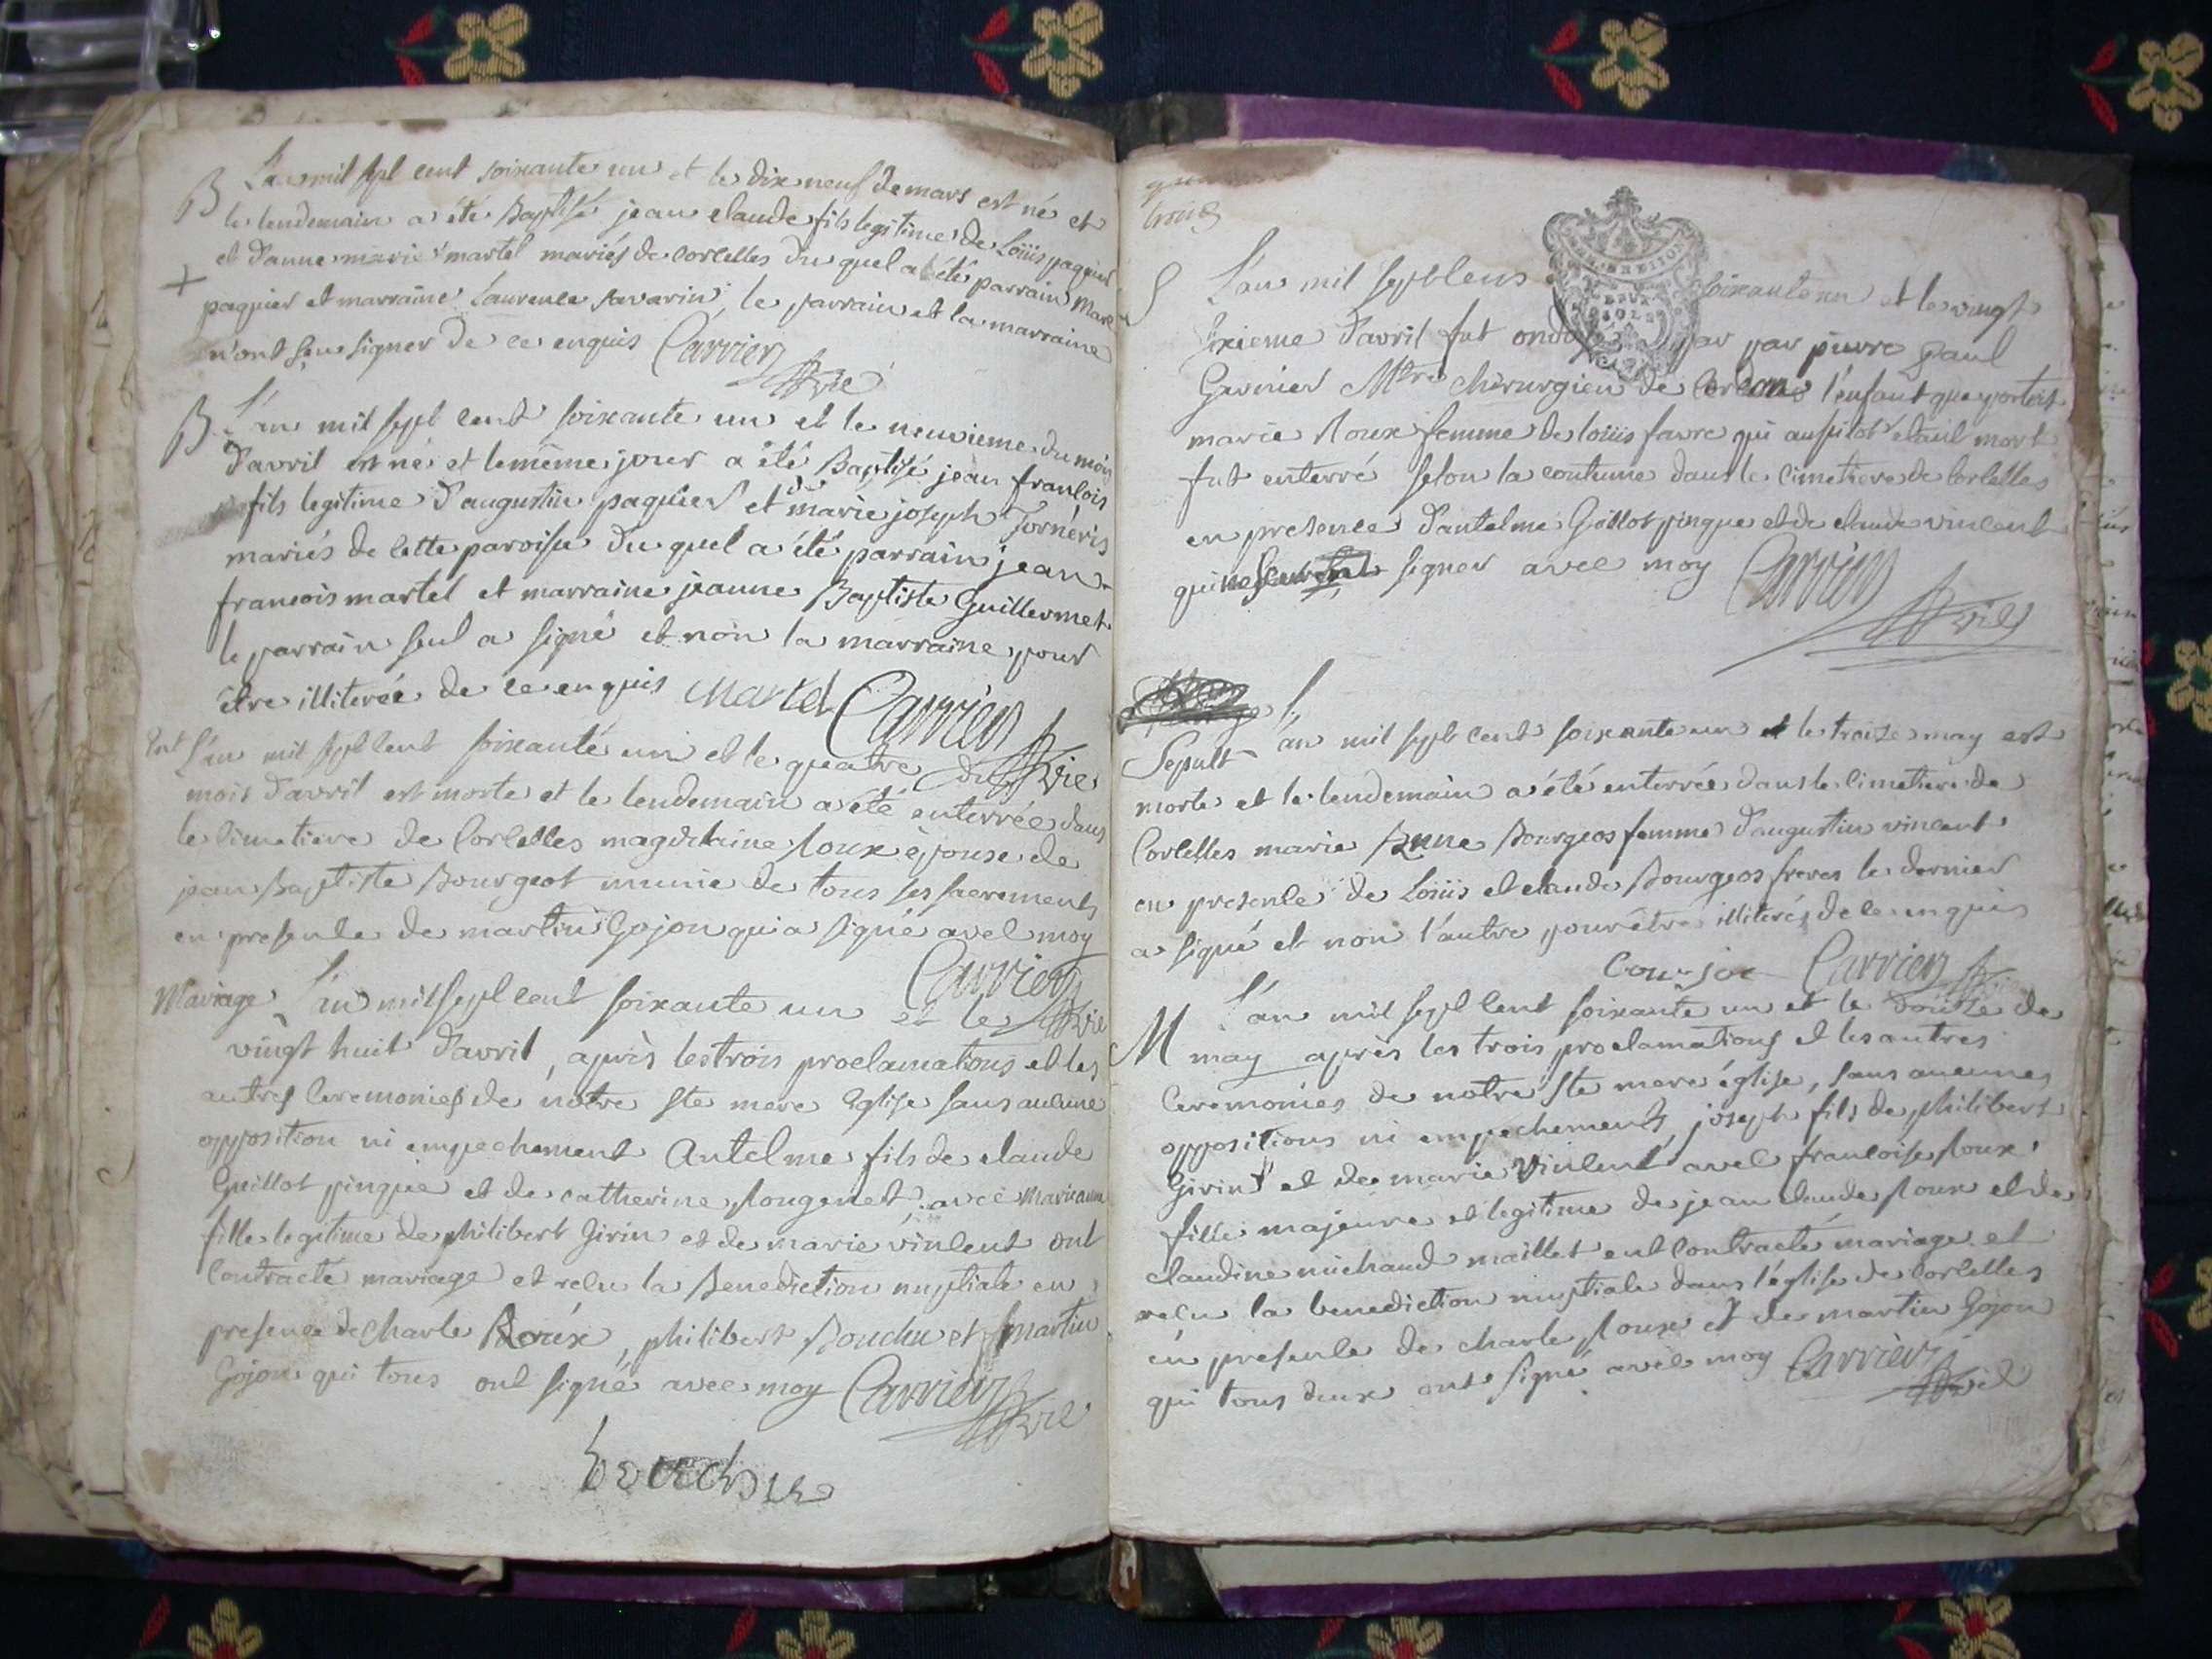 B L'an mil sept cent soixante un et le dix neuf de mars est né et
le lendemain a été Baptisé jean claude fils legitime de Loüis paquier
et d'anne marie martel mariés de corcelles du quel a été parrain Marc
+ paquier et marraine Laurence savarin, le parrain et la marraine
n'ont sçu signer de ce enquis Carrier
B L'an mil sept cent soixante un et le neuvieme du mois
d'avril est né et le même jour a été Baptisé jean francois
fils legitime d'augustin paquier et de marie joseph Jorneris
mariés de cette paroisse du quel a été parrain jean-
francois martel et marraine jeanne Baptiste Guillermet
le parrain seul a signé et non la marraine pour
être illiterée de ce enquis Martel Carrier
Ent L'an mil sept cent soixante un et le quatre du vic
mois d'avril est morte et le lendemain a été enterrée dans
le cimetiere de Corcelles magdelaine Roux épouse de
jean Baptiste Bourgeot munie de tous ses sacrements
en presence de martin Gojon qui a signé avec moy
Carrier vic
Mariage L'an mil sept cent soixante un et le
vingt huit d'avril, après les trois proclamations et les
autres Ceremonies de nôtre Ste mere Eglise sans aucune
opposition ni empechement Antelme fils de claude
Guillot pingue et de catherine Rougemet avec marie anne
fille legitime de philibert Girin et de marie vincent ont
Contracté mariage et recu la Benediction nuptiale en
presence de Charle Roux, philibert Bouchu et martin
Gojon qui tous ont signé avec moy Carrier vic
bouchu
trois
S L'an mil sept cens soixante un et le vingt
sixieme d'avril fut ondoyé par par pierre paul
Garnier Mtre chirurgien de Cerdon l'enfant que portoit
marie Roux femme de loüis favre qui aussitôt étant mort
fut enterré selon la coutume dans le cimetiere de Corcelles
en presence d'antelme Guillot pingue et de claude vincent
qui signer avec moy Carrier
vic
Sepult L'an mil sept cent soixante un et le treize may est
morte et le lendemain a été enterrée dans le cimetiere de
Corcelles marie Anne Bourgeos femme d'augustin vincent
en presence de Loüis et claude Bourgeos freres le dernier
a signé et non l'autre pour être illiteré de ce enquis
Carrier
M L'an mil sept cent soixante un et le douze de
may après les trois proclamations et les autres
Ceremonies de notre Ste mere église, sans aucunes
oppositions ni empechements, joseph fils de philibert
Girin et de marie vincent avec francoise Roux
fille majeure et legitime de jean claude Roux et de
claudine michaud maillet ont contracté mariage et
recu la benediction nuptiale dans l'église de Corcelles
en presence de charle Roux et de martin Gojon
qui tous deux ont signé avec moy Carrier
vic